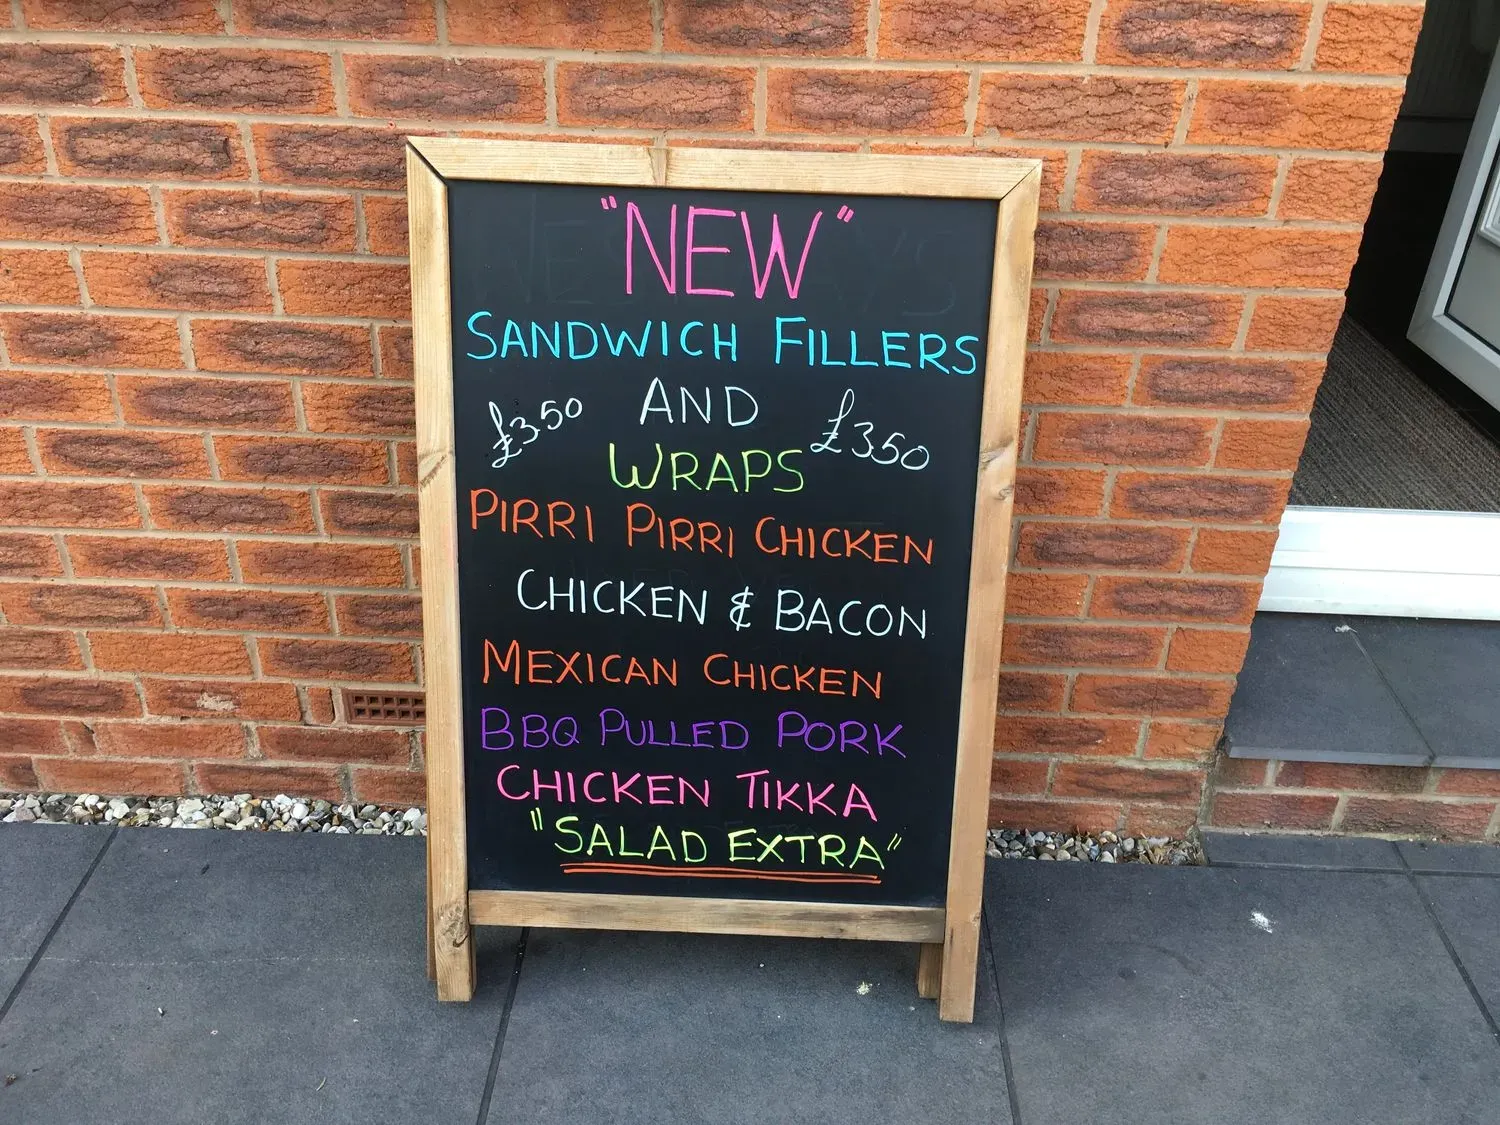 "NEW"
SANDWICH FILLERS
£3.50 AND £3.50
WRAPS
PIRRI PIRRI CHICKEN
CHICKEN & BACON
MEXICAN CHICKEN
BBQ PULLED PORK
CHICKEN TIKKA
"SALAD EXTRA"